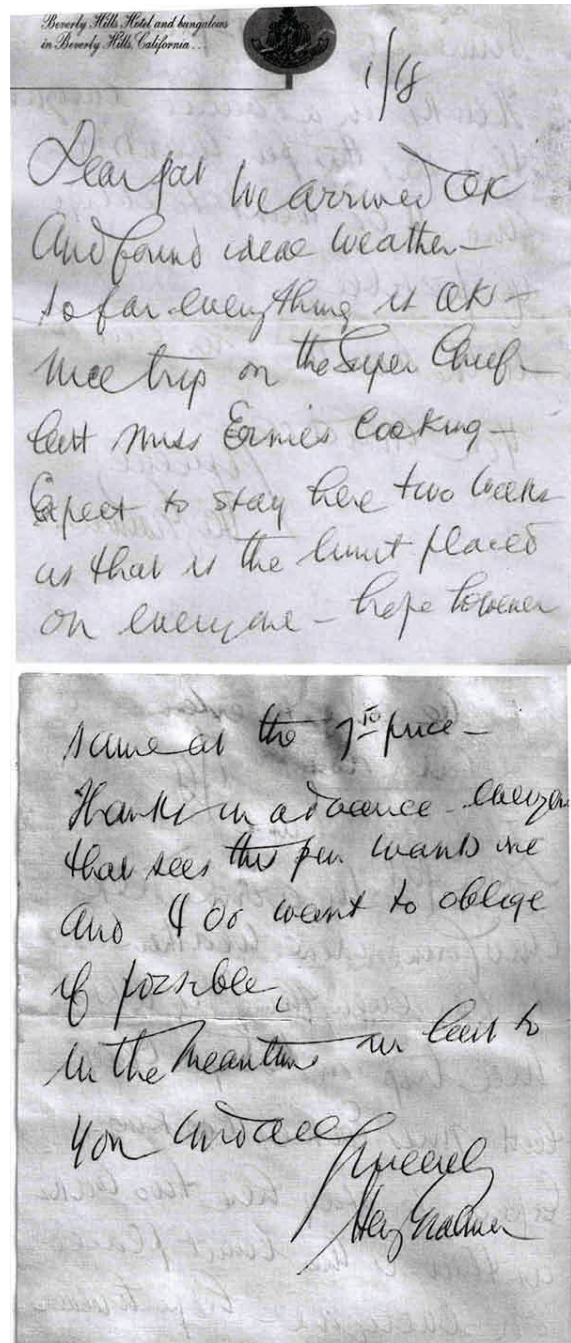 Beverly Hills Hotel and bungalows
in Beverly Hills, California...
1/18
Dear Pat We arrived OK
And found ideal weather —
so far everything is OK —
nice trip on the Super Chief —
but miss Ernies Cooking —
Expect to stay here two weeks
as that is the limit placed
on everyone — hope however
same at the price —
Thanks in advance — everyone
that sees this pen wants one
and I do want to oblige
if possible,
in the meantime our best to
you and all
Sincerely